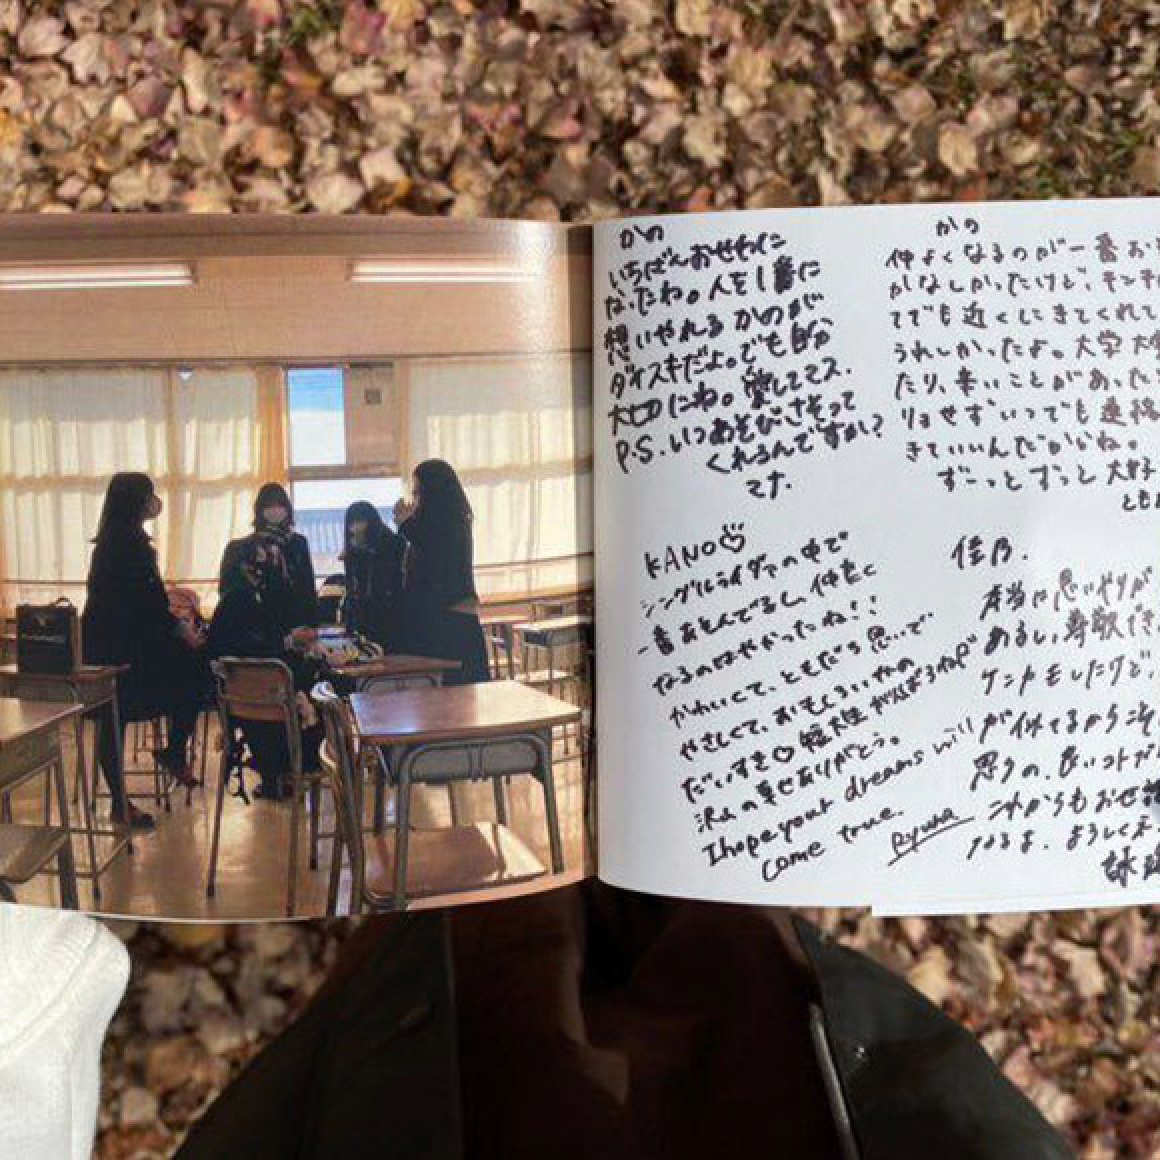 かの
いちばんおせわに
なったね。人を1番に
想いやれるかのが
ダイスキだよ。でも自分
大切にね。愛してマス.
P.S.いつあそびさそって
くれるんですか?
マナ.
かの
仲よくなるのが一番お
がなしかったけど、
てでも近くにきてくれて
うれしかったよ。大学
たり、辛いことがあった
りょせずいつでも連絡
きていいんだからね。
ずーっとずっと大好
とも
KANO♡
シングルライダーの中で
一番あそんでるし、仲良く
なるのはやかったね!!
かわいくて、ともだち思いで
やさしくて、おもしろいかのが
だいすき♡ がんばろうね
沢山の幸せありがとう。
I hope your dreams will
come true.
Ryuna
佳乃.
本当に思いやりが
あるし、尊敬でき
ケンカをしたけど、
が似てるからこそ
思うの、良いコトが
これからもお世話
なるよ.よろしくネ